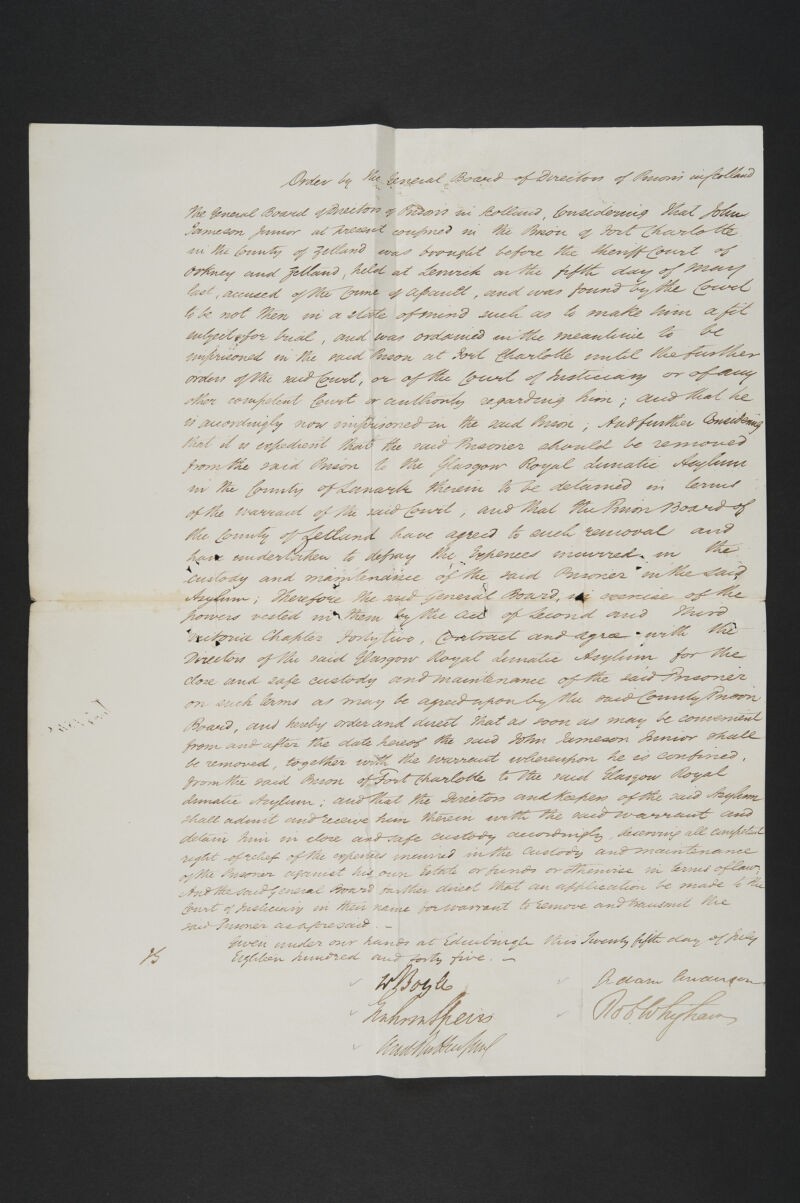 Order by the General Board of Directors of Prisons in Scotland
The General Board of Directors of Prisons in Scotland, Considering that John
Jameson Junior at present confined in the Prison of Fort Charlotte
in the County of Zetland was brought before the Sheriff Court of
Orkney and Zetland, held at Lerwick on the fifth day of May
last, accused of the Crime of Assault, and was found by the Court
to be not then in a state of mind such as to make him a fit
subject for trial, and was ordained in the meantime to be
imprisoned in the said Prison at Fort Charlotte until the further
orders of the said Court, or of the Court of Justiciary or of any
other competent Court or authority regarding him; and that he
is accordingly now imprisoned in the said Prison; And further Considering
that it is expedient that the said Prisoner should be removed
from the said Prison to the Glasgow Royal Lunatic Asylum
in the County of Lanark therein to be detained in terms
of the warrant of the said Court, and that the Prison Board of
the County of Zetland have agreed to such removal and
have undertaken to defray the expences incurred in the
custody and maintenance of the said Prisoner in the said
Asylum; Therefore the said General Board, in exercise of the
powers vested in them by the Act of Second and Third
Victoria Chapter Forty two, Contract and agree with the
Directors of the said Glasgow Royal Lunatic Asylum for the
close and safe custody and maintenance of the said Prisoner
on such terms as may be agreed upon by the said County Prison
Board, and hereby order and direct that as soon as may be convenient
from and after the date hereof the said John Jameson Junior shall
be removed, together with the warrant whereupon he is confined,
from the said Prison of Fort Charlotte to the said Glasgow Royal
Lunatic Asylum; and that the Directors and Keepers of the said Asylum
shall admit and receive him therein with the said warrant and
detain him in close and safe custody accordingly, reserving all competent
right of relief of the expences incurred in the custody and maintenance
of the Prisoner against his own Estate or funds or otherwise in terms of law.
And the said General Board further direct that an application be made to the
Court of Justiciary in their name for warrant to remove and transmit the
said Prisoner as aforesaid. —
Given under our hands at Edinburgh this Twenty fifth day of July
Eighteen hundred and forty five. —
Adam Anderson
Boyle
Graham Speirs
Rob Whigham